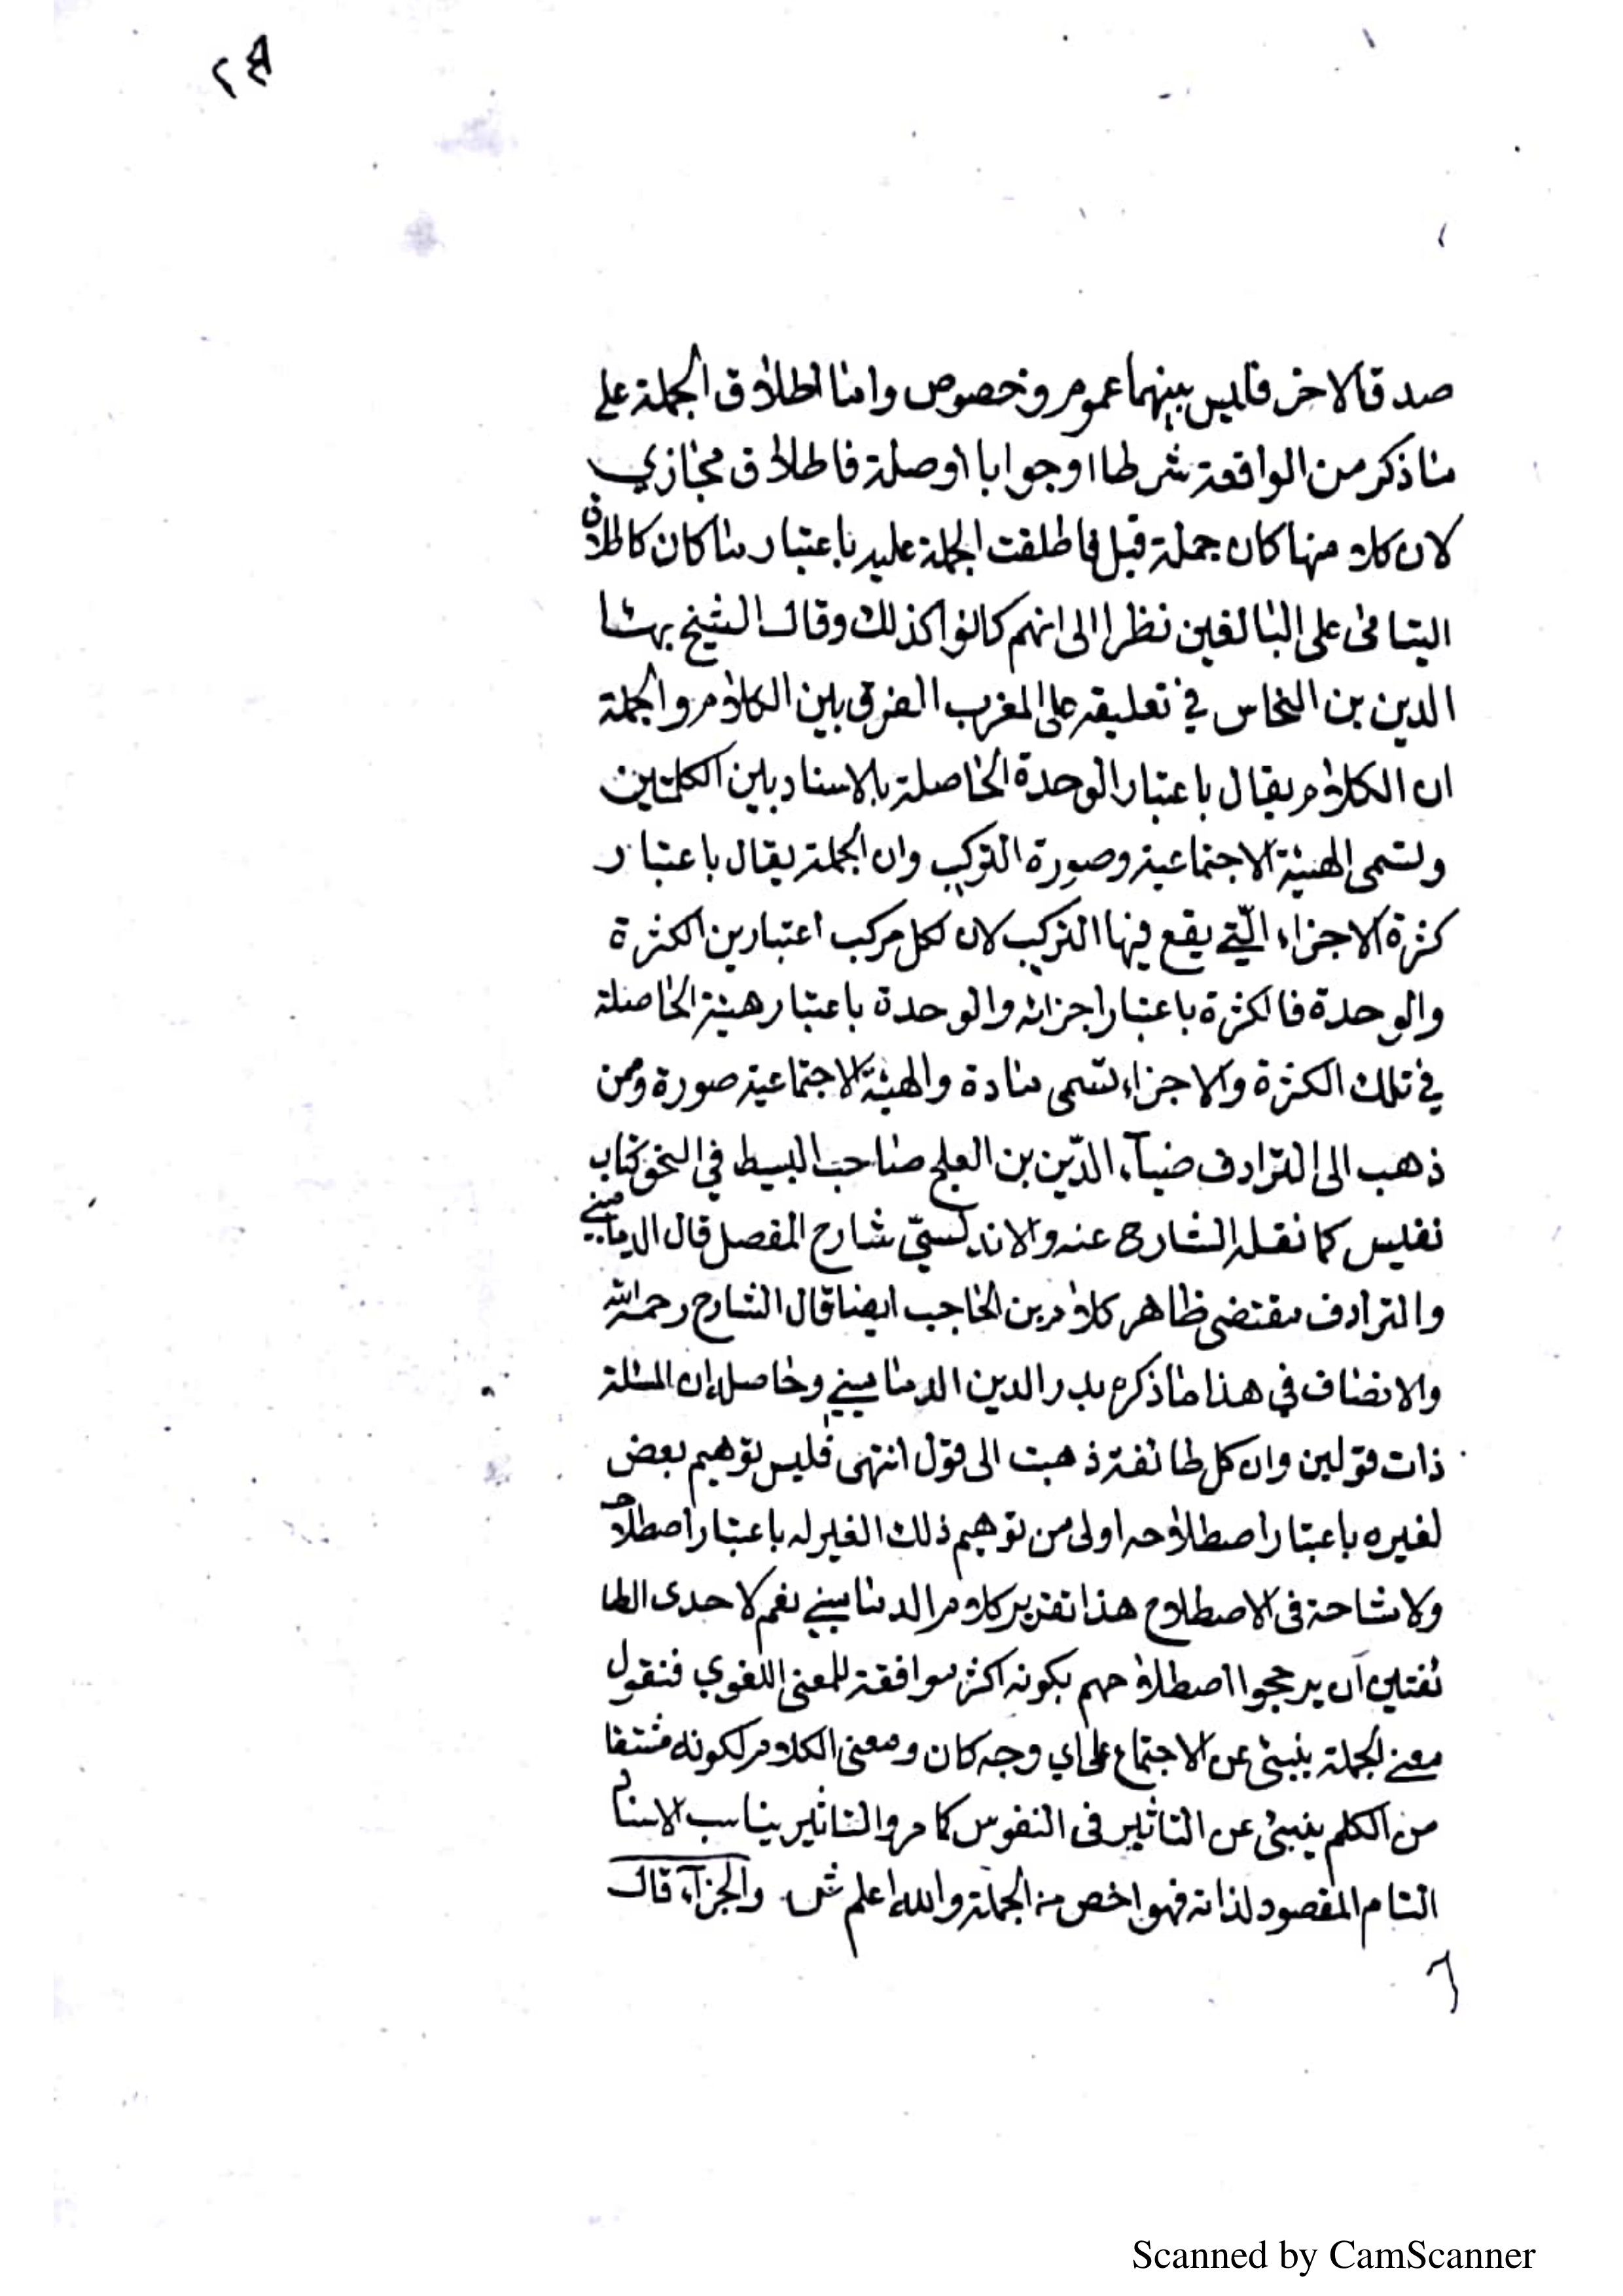 صدق الاخر فليس بينهما عموم وخصوص واما اطلاق الجملة على
ما ذكر من الواقعة شرطا او جوابا او صلة فاطلاق مجازي
لان كلا منها كان جملة قبل فاطلقت الجملة عليه باعتبار ما كان كاطلاق
اليتامى على البالغين نظرا الى انهم كانوا كذلك وقال الشيخ بهاء
الدين بن النحاس في تعليقه على المغرب الفرق بين الكلام والجملة
ان الكلام يقال باعتبار الوحدة الحاصلة بالاسناد بين الكلمتين
وتسمى الهيئة الاجتماعية وصورة التركيب وان الجملة يقال باعتبار
كثرة الاجزاء الّتي يقع فيها التركيب لان لكل مركب اعتبارين الكثرة
والوحدة فالكثرة باعتبار اجزائه والوحدة باعتبار هيئة الحاصلة
في تلك الكثرة والاجزاء تسمى مادة والهيئة الاجتماعية صورة وممن
ذهب الى الترادف ضيآء الدّين بن العلج صاحب البسيط في النحو كتاب
نفيس كما نقله الشارح عنه والاندلسيّ شارح المفصل قال الدماميني
والترادف مقتضى ظاهر كلام بن الحاجب ايضا قال الشارح رحمه الله
والانصاف في هذا ما ذكره بدر الدين الدماميني وحاصله ان المسئلة
ذات قولين وان كل طائفة ذهبت الى قول انتهى فليس توهيم بعض
لغيره باعتبار اصطلاحه اولى من توهيم ذلك الغير له باعتبار اصطلاحه
ولا مشاحة فى الاصطلاح هذا تقرير كلام الدماميني نعم لاحدى الطا
ئفتين ان يرجحوا اصطلاحهم بكونه اكثر موافقة للمعنى اللغوي فنقول
معنى الجملة ينبئ عن الاجتماع على اي وجه كان ومعنى الكلام لكونه مشتقا
من الكلم ينبئ عن التاثير فى النفوس كما مر والتاثير يناسب الاسناد
التام المقصود لذاته فهو اخص من الجملة والله اعلم ش والجزآء قال
Scanned by CamScanner